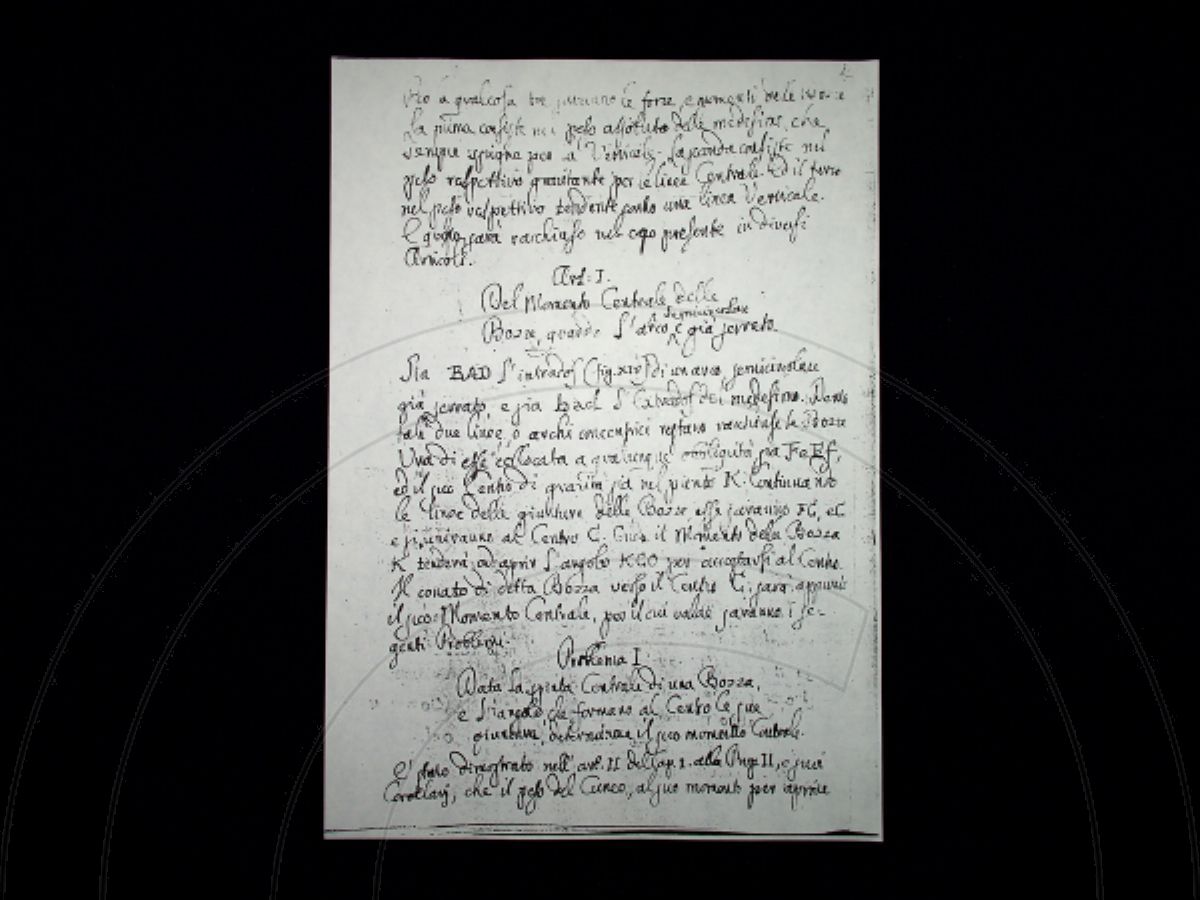 a qualcosa tre saranno le forze, e momenti delle
La prima consiste nel peso assoluto delle medesime, che
sempre spigne per la Verticale. La seconda consiste nel
peso respettivo gravitante per le linee Centrali. Ed il terzo
nel peso respettivo tendente sotto una linea Verticale.
E questo sarà racchiuso nel capo presente in diversi
Articoli.
Art: I.
Del Momento Centrale delle
Bozze, quando l'arco semicircolare è già serrato.
Sia BAD l'intrados (fig. XIV) di un arco semicircolare
già serrato, e sia bad l'Estrados del medesimo. Dentro
tali due linee, o archi concentrici restano racchiuse le Bozze
Una di esse collocata a qualunque obbliguità sia FeEf,
ed il suo Centro di gravità sia nel punto K. Continuando
le linee delle giunture delle Bozze esse saranno FC, eC
e si uniranno al Centro C. Gioca il Momento della Bozza
K tenderà ad aprir l'angolo KCO per accostarsi al Centro.
Il conato di detta Bozza verso il Centro C, sarà appunto
il suo Momento Centrale, per il cui valore saranno i se-
guenti Problemi.
Problema I
Data la spinta Centrale di una Bozza,
e l'angolo che formano al Centro le sue
giunture, determinare il suo momento Centrale.
E' stato dimostrato nell'art. II del Cap. 1. alla Prop II, e suoi
Corollarj, che il peso del Cuneo, al suo momento per aprire